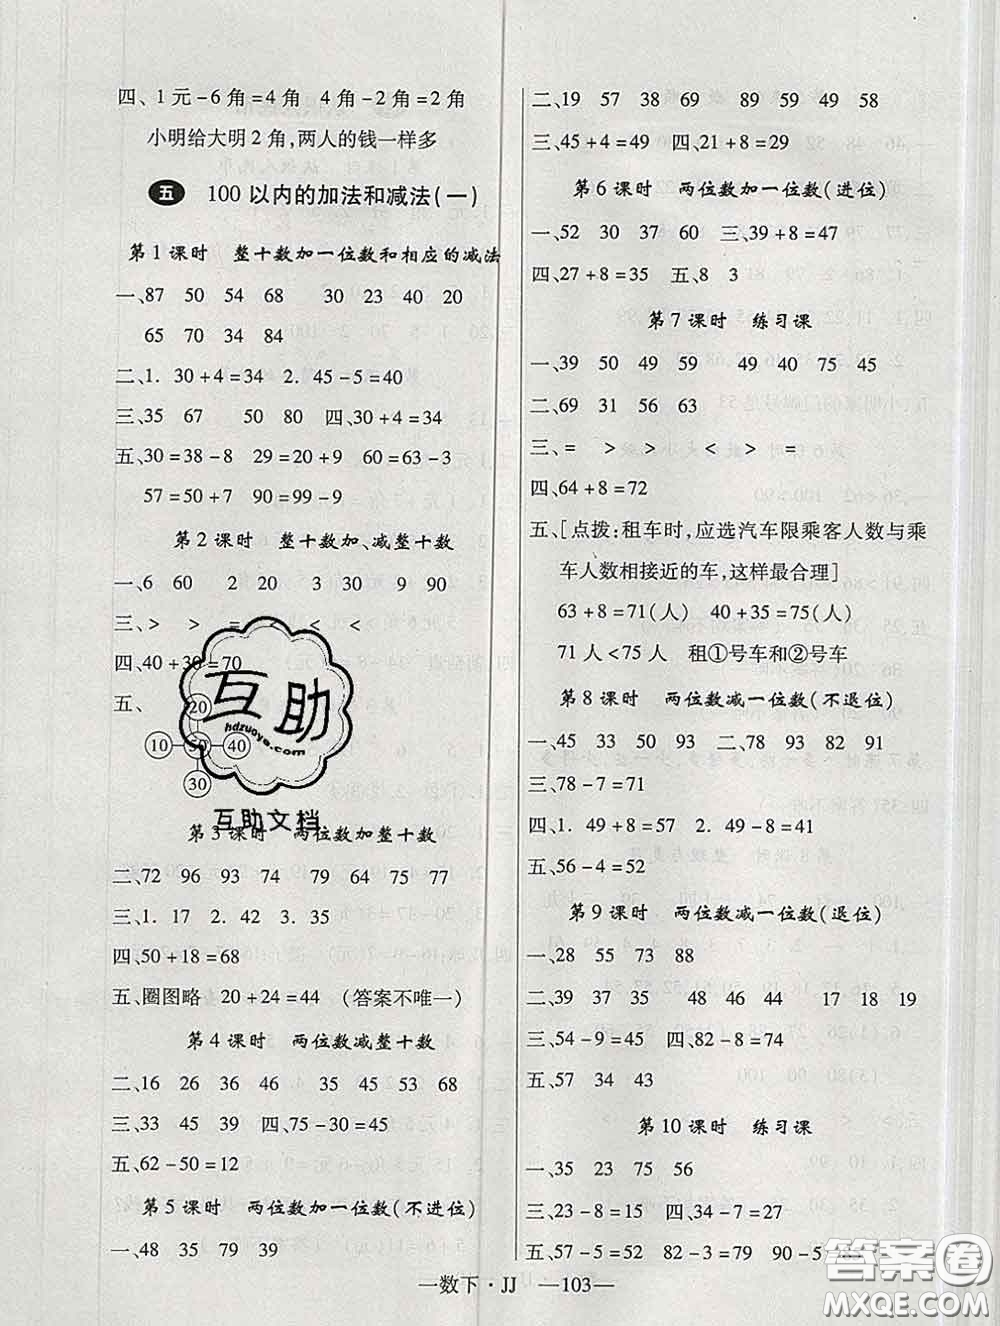 四、1元-6角=4角 4角-2角=2角
小明给大明2角,两人的钱一样多
五 100以内的加法和减法(一)
第1课时 整十数加一位数和相应的减法
一、87 50 54 68 30 23 40 20
65 70 34 84
二、1. 30+4=34 2. 45-5=40
三、35 67 50 80 四、30+4=34
五、30=38-8 29=20+9 60=63-3
57=50+7 90=99-9
第2课时 整十数加、减整十数
一、6 60 2 20 3 30 9 90
三、> > = < < <
四、40+30=70
五、
20
10 50 40
30
互助
hdzuoye.com
互助文档
第3课时 两位数加整十数
二、72 96 93 74 79 64 75 77
三、1. 17 2. 3. 35
四、50+18=68
五、圈图略 20+24=44 (答案不唯一)
第4课时 两位数减整十数
二、16 26 36 46 35 45 53 68
三、33 45 39 四、75-30=45
五、62-50=12
第5课时 两位数加一位数(不进位)
一、48 35 79 39
二、19 57 38 69 89 59 49 58
三、45+4=49 四、21+8=29
第6课时 两位数加一位数(进位)
一、52 30 37 60 三、39+8=47
四、27+8=35 五、8 3
第7课时 练习课
一、39 50 49 59 49 40 75 45
二、69 31 56 63
三、= > > < > =
四、64+8=72
五、[点拨:租车时,应选汽车限乘客人数与乘
车人数相接近的车,这样最合理]
63+8=71(人) 40+35=75(人)
71人<75人 租①号车和②号车
第8课时 两位数减一位数(不退位)
一、45 33 50 93 二、78 93 82 91
三、78-7=71
四、1. 49+8=57 2. 49-8=41
五、56-4=52
第9课时 两位数减一位数(退位)
一、28 55 73 88
二、39 37 35 48 46 47 17 18 19
三、54-9=45 四、82-8=74
五、57 34 43
第10课时 练习课
一、35 23 75 56
三、23-8=15 四、34-7=27
五、57-5=52 82-3=79 90-5=85
一数下·JJ —103—
答案圈
MXQE.COM